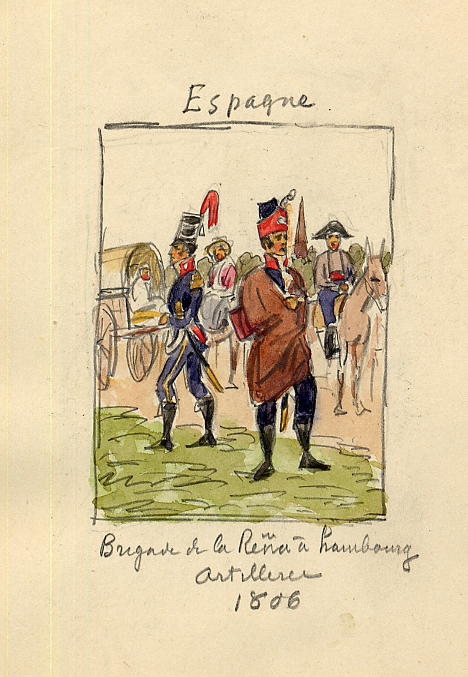 Espagne
Brigade de la Reña à hambourg
Artillerie
1806